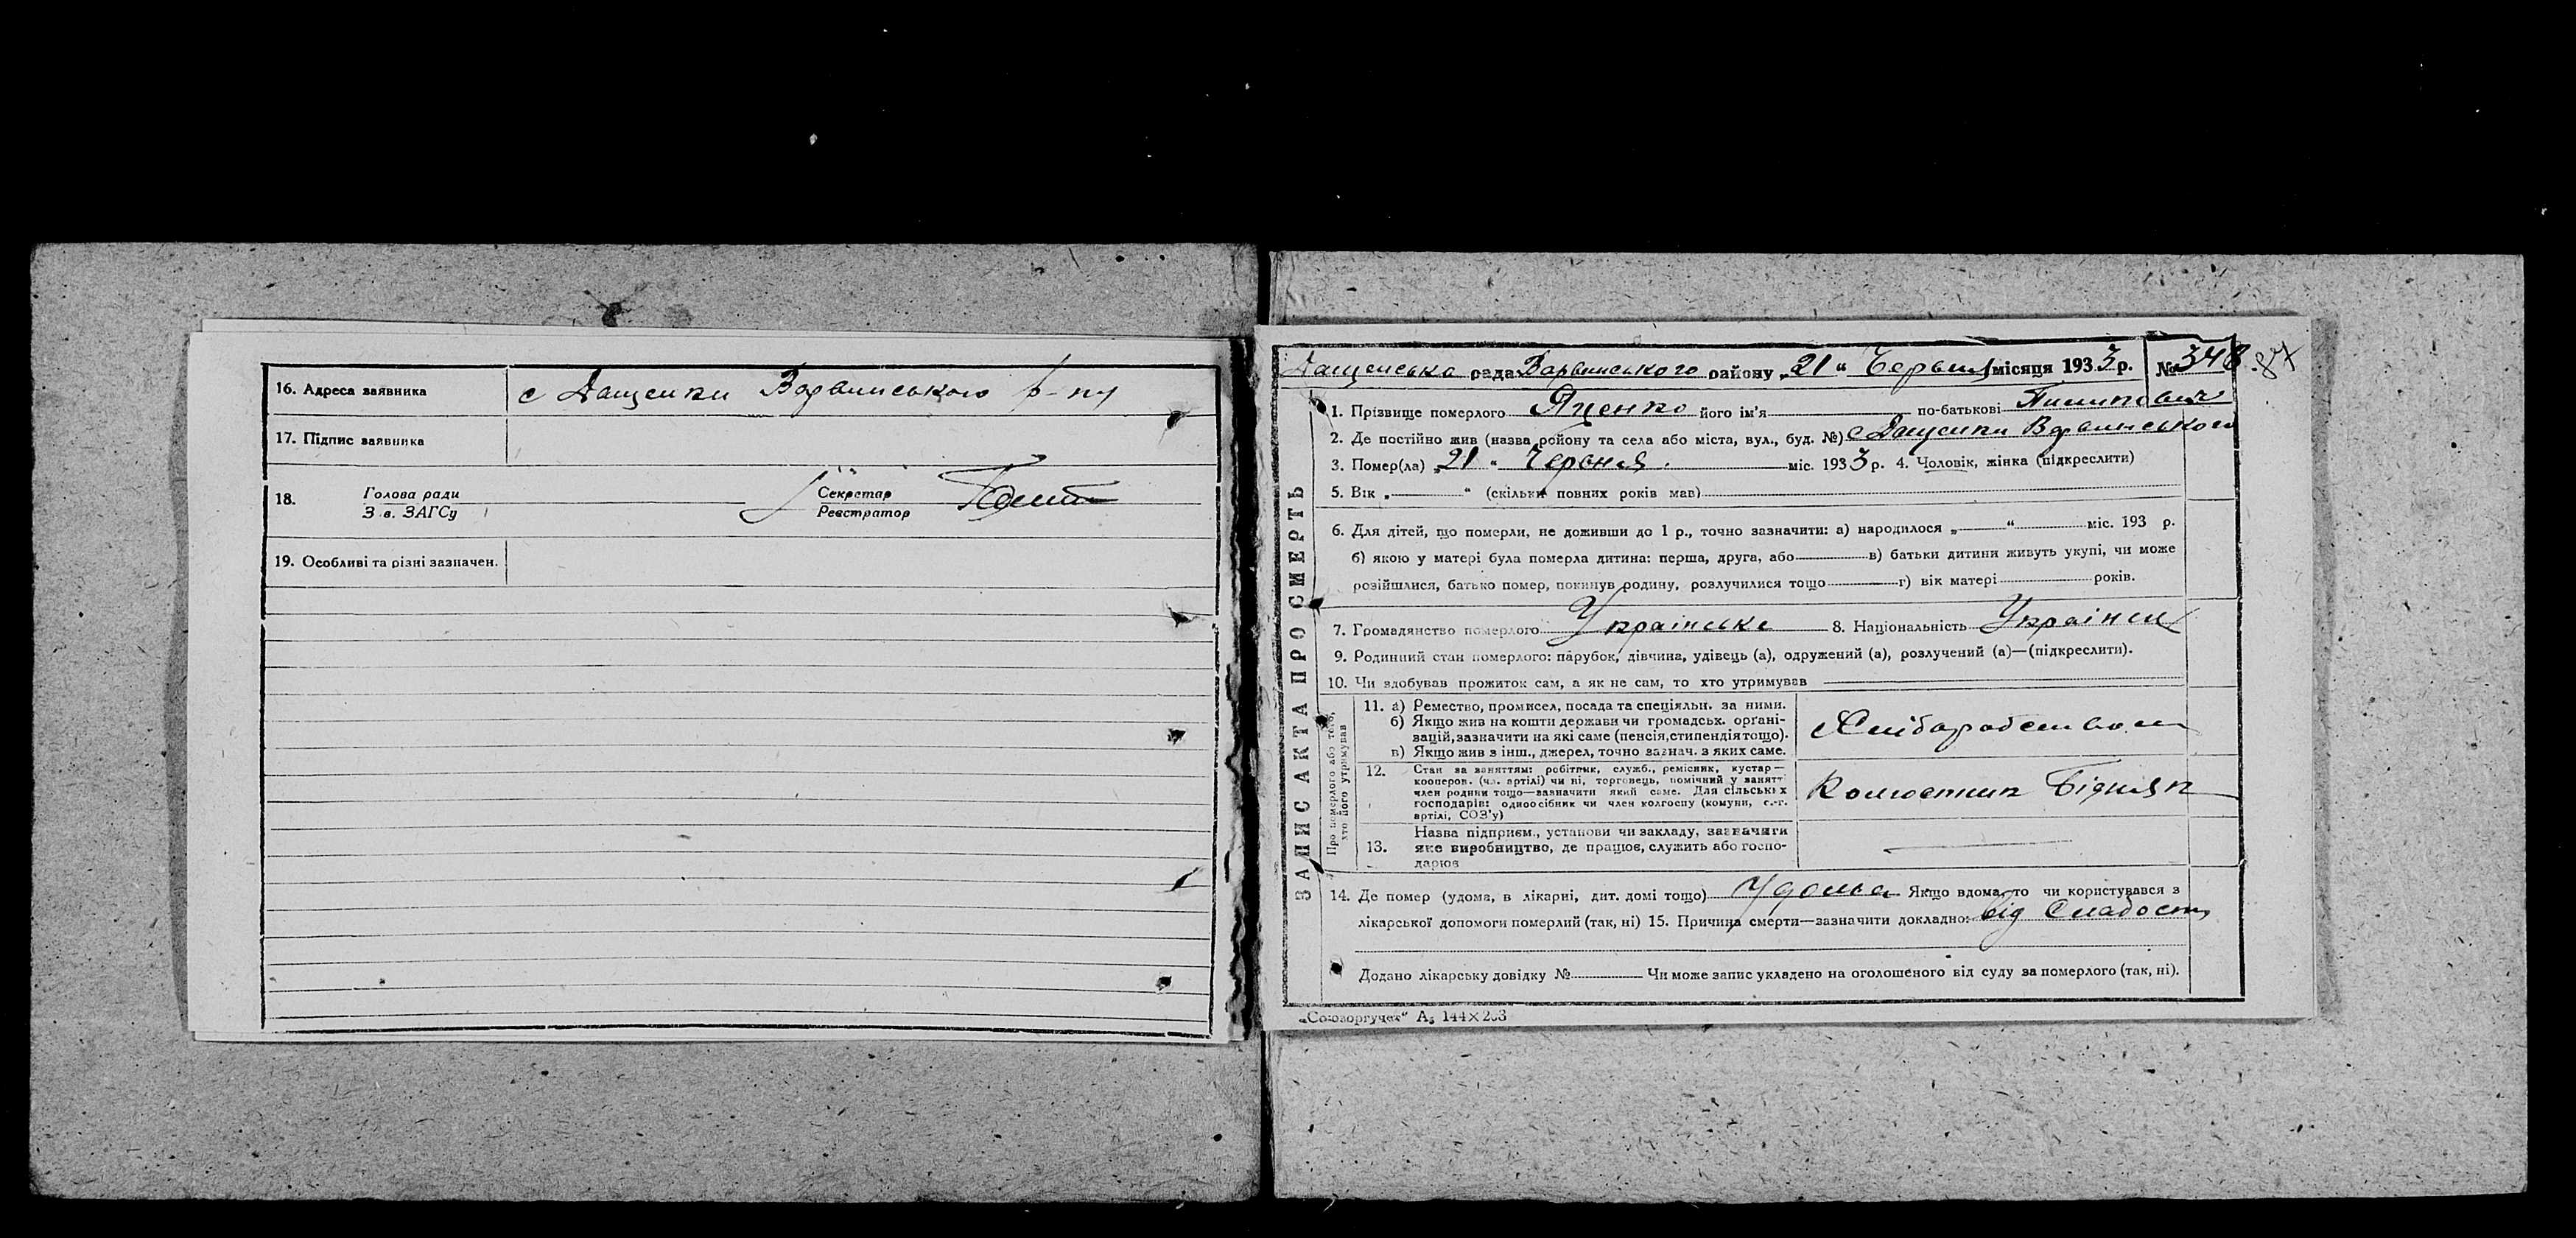 16. Адреса заявника с Дащенки Варвинського р-ну
17. Підпис заявника
18. Голова ради Секретар
З в. ЗАГСу Реєстратор
19. Особливі та різні зазначен.
Дащенська рада Варвинського району „21“ Червня місяця 1933 р. № 348
87
ЗАПИС АКТА ПРО СМЕРТЬ
1. Прізвище померлого Яценко його ім'я по-батькові Пилипович
2. Де постійно жив (назва району та села або міста, вул., буд. №) с Дащенки Варвинського
3. Помер(ла) „21“ Червня. міс. 1933 р. 4. Чоловік, жінка (підкреслити)
5. Вік „ “ (скільки повних років мав)
6. Для дітей, що померли, не доживши до 1 р., точно зазначити: а) народилося „ “ міс. 193 р.
б) якою у матері була померла дитина: перша, друга, або в) батьки дитини живуть укупі, чи може
розійшлися, батько помер, покинув родину, розлучилися тощо г) вік матері років.
7. Громадянство померлого Українське 8. Національність Українец
9. Родинний стан померлого: парубок, дівчина, удівець (а), одружений (а), розлучений (а)—(підкреслити).
10. Чи здобував прожиток сам, а як не сам, то хто утримував
Про померлого або того,
хто його утримував
11. а) Ремество, промисел, посада та спеціяльн. за ними.
б) Якщо жив на кошти держави чи громадськ. органі-
зацій, зазначити на які саме (пенсія, стипендія тощо).
в) Якщо жив з інш., джерел, точно зазнач. з яких саме.
Хлібаробством
12. Стан за заняттям: робітник, служб., ремісник, кустар—
кооперов. (чл. артілі) чи ні, торговець, помічний у занятт
член родини тощо—зазначити який саме. Для сільських
господарів: одноосібник чи член колгоспу (комуни, с.-г.
артілі, СОЗ'у)
Колгостник Бідняк
13. Назва підприєм., установи чи закладу, зазначити
яке виробництво, де працює, служить або госпо-
дарює
14. Де помер (удома, в лікарні, дит. домі тощо) Удома Якщо вдома, то чи користувався з
лікарської допомоги померлий (так, ні) 15. Причина смерти—зазначити докладно: від Слабости
Додано лікарську довідку № Чи може запис укладено на оголошеного від суду за померлого (так, ні).
„Союзоргучет“ А₅ 144×203